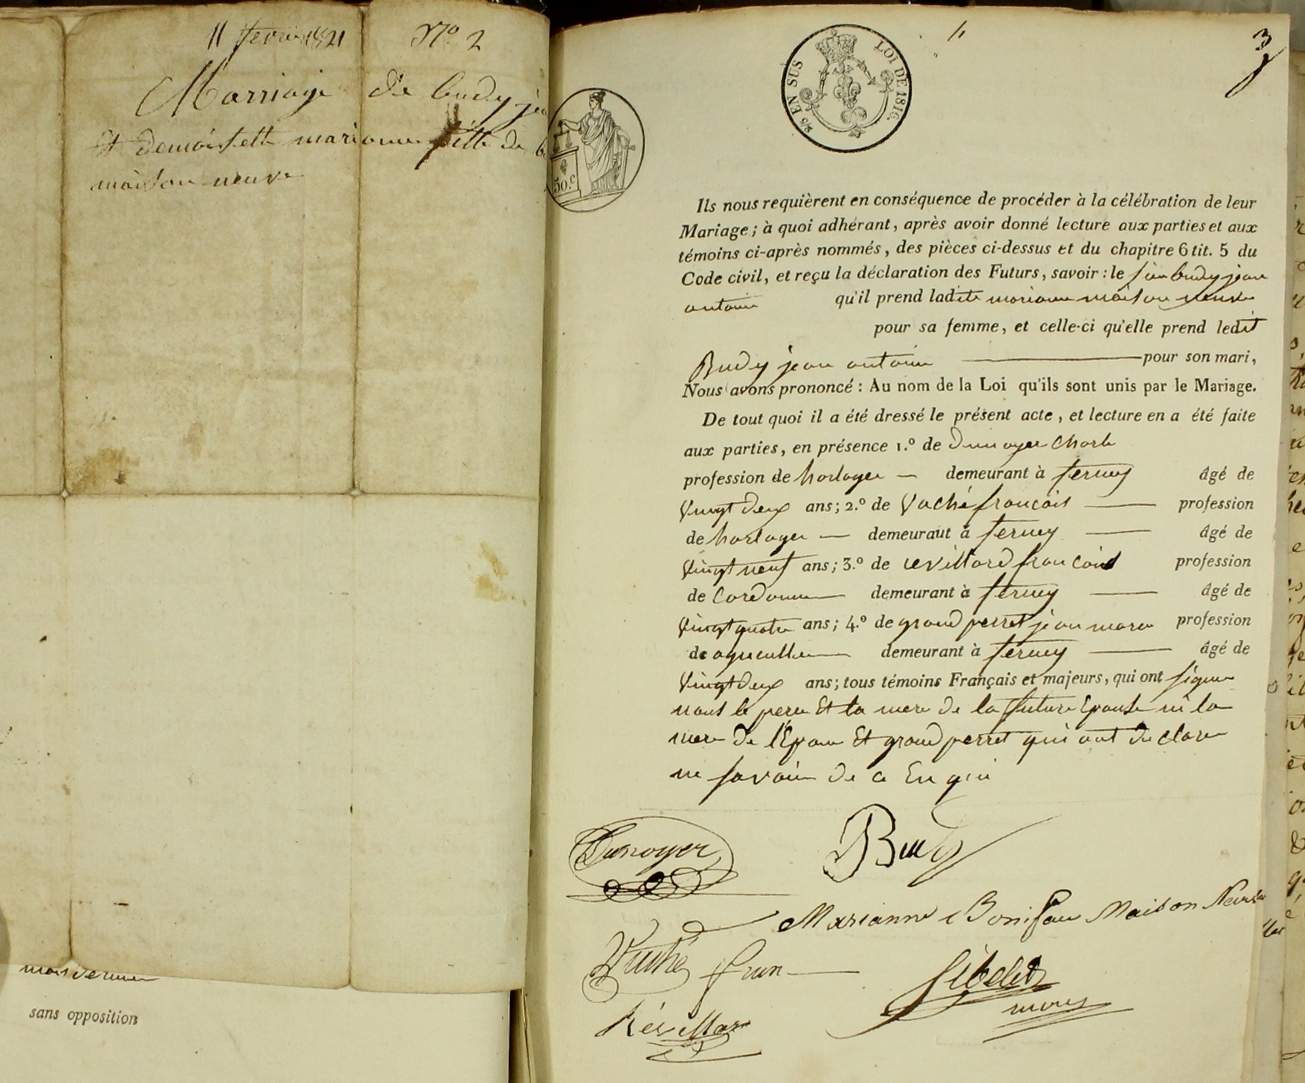 11 fevrier 1821 N° 2
Marriage de budy jean
et demoiselle marianne fille de
maison neuve
mois dernier
sans opposition
3
25 EN SUS LOI DE 1816.
50.c
Ils nous requièrent en conséquence de procéder à la célébration de leur
Mariage; à quoi adhérant, après avoir donné lecture aux parties et aux
témoins ci-après nommés, des pièces ci-dessus et du chapitre 6 tit. 5 du
Code civil, et reçu la déclaration des Futurs, savoir: le sieur budy jean
antoine qu'il prend ladite marianne maison neuve
pour sa femme, et celle-ci qu'elle prend ledit
Budy jean antoine pour son mari,
Nous avons prononcé : Au nom de la Loi qu'ils sont unis par le Mariage.
De tout quoi il a été dressé le présent acte, et lecture en a été faite
aux parties, en présence 1.° de dunoyer charle
profession de horloger demeurant à ferney âgé de
Vingt deux ans; 2.° de Vuché françois profession
de horloger demeurant à ferney âgé de
Vingt neuf ans; 3.° de revillard françois profession
de Cordonnier demeurant à ferney âgé de
Vingt quatre ans; 4.° de grand perret jean marc profession
de agriculteur demeurant à ferney âgé de
Vingt deux ans; tous témoins Français et majeurs, qui ont signé
nous le pere Et la mere de la future Epouse ni la
mere de l'Epoux Et grand perret qui ont declare
ne savoir de ce En qui
Dunoyer Budy
Marianne Boniface Maison Neuve
Vuché fran
Revillar
mere